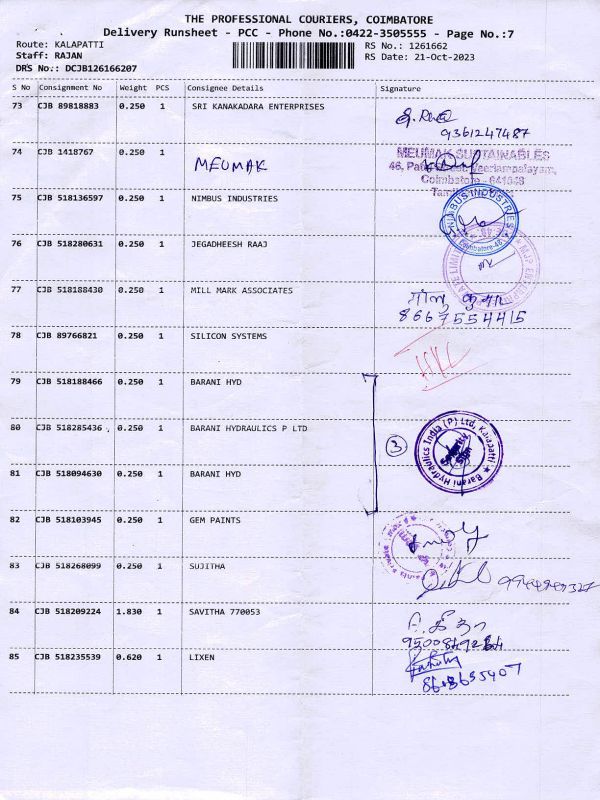 THE PROFESSIONAL COURIERS, COIMBATORE
Delivery Runsheet - PCC - Phone No.:0422-3505555 - Page No.:7
Route: KALAPATTI RS No.: 1261662
Staff: RAJAN RS Date: 21-Oct-2023
DRS No.: DCJB126166207
S No Consignment No Weight PCS Consignee Details Signature
73 CJB 89818883 0.250 1 SRI KANAKADARA ENTERPRISES
9361247487
74 CJB 1418767 0.250 1 MEUMAK
MEUMAK SUSTAINABLES
Coimbatore
75 CJB 518136597 0.250 1 NIMBUS INDUSTRIES
NIMBUS INDUSTRIES
Coimbatore-48
76 CJB 518280631 0.250 1 JEGADHEESH RAAJ
77 CJB 518188430 0.250 1 MILL MARK ASSOCIATES
8667554415
78 CJB 89766821 0.250 1 SILICON SYSTEMS
79 CJB 518188466 0.250 1 BARANI HYD
80 CJB 518285436 0.250 1 BARANI HYDRAULICS P LTD
3
Barani Hydraulics India (P) Ltd, Kalapatti
81 CJB 518094630 0.250 1 BARANI HYD
82 CJB 518103945 0.250 1 GEM PAINTS
83 CJB 518268099 0.250 1 SUJITHA
84 CJB 518209224 1.830 1 SAVITHA 770053
85 CJB 518235539 0.620 1 LIXEN